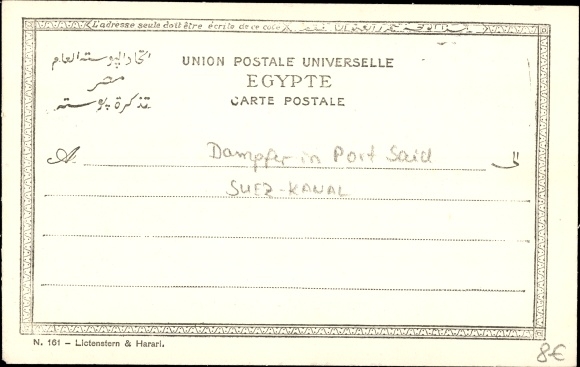 L'adresse seule doit être écrite de ce coté
اتحاد البوسته العام
مصر
تذكرة بوسته
UNION POSTALE UNIVERSELLE
EGYPTE
CARTE POSTALE
A Dampfer in Port Said الى
SUEZ-KANAL
N. 161 – Lictenstern & Harari.
8€